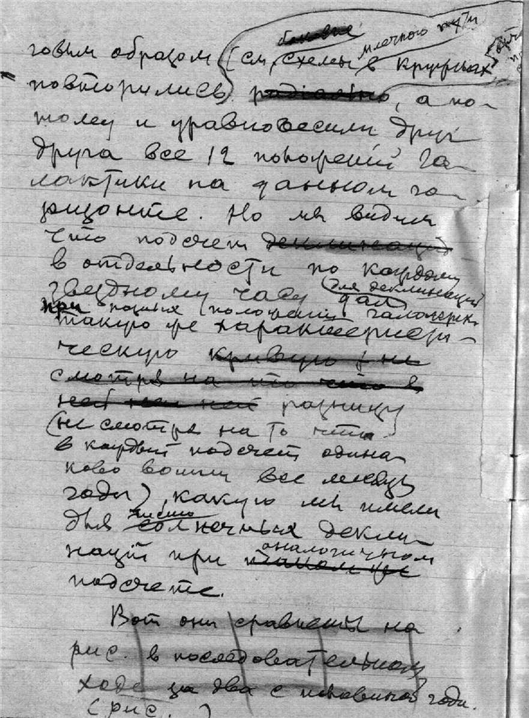 боковые
млечного пути
говым образом (см. схемы в кругах
повторились) радиально, а по-
тому и уравновесили друг
друга все 12 положений га-
лактики на данном го-
ризонте. Но мы видим
что подсчет деклинаций
в отдельности по каждому
звездному часу для деклинаций
при разных положениях дал
такую же характеристи-
ческую кривую
смотря на то что в
ней разницу
(не смотря на то что
в каждый подсчет одина-
ково вошли все месяцы
года), какую мы имели
для чисто солнечных декли-
наций при аналогичном
подсчете.
Вот они сравнены на
рис. в последовательном
ходе за два с половиной года.
(рис. )